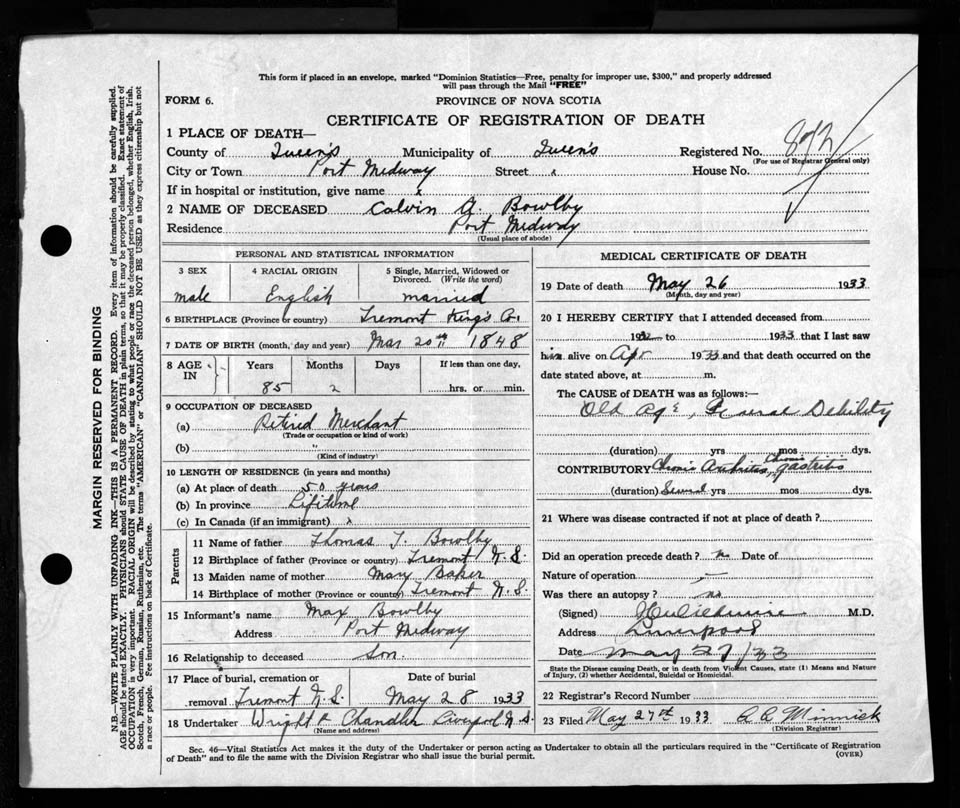 This form if placed in an envelope, marked "Dominion Statistics—Free, penalty for improper use, $300," and properly addressed
will pass through the Mail "FREE"
FORM 6.
PROVINCE OF NOVA SCOTIA
CERTIFICATE OF REGISTRATION OF DEATH
1 PLACE OF DEATH—
County of Queen's Municipality of Queen's Registered No.
(For use of Registrar General only)
City or Town Port Medway Street x House No.
If in hospital or institution, give name x
2 NAME OF DECEASED Calvin G. Bowlby
Residence Port Medway
(Usual place of abode)
PERSONAL AND STATISTICAL INFORMATION
3 SEX 4 RACIAL ORIGIN 5 Single, Married, Widowed or
Divorced. (Write the word)
male English married
6 BIRTHPLACE (Province or country) Tremont King's Co.
7 DATE OF BIRTH (month, day and year) Mar 20th 1848
8 AGE IN Years Months Days If less than one day,
85 2 hrs. or min.
9 OCCUPATION OF DECEASED
(a) Retired Merchant
(Trade or occupation or kind of work)
(b) "
(Kind of industry)
10 LENGTH OF RESIDENCE (in years and months)
(a) At place of death 50 years
(b) In province Lifetime
(c) In Canada (if an immigrant) x
Parents
11 Name of father Thomas T. Bowlby
12 Birthplace of father (Province or country) Tremont N.S.
13 Maiden name of mother Mary Baker
14 Birthplace of mother (Province or country) Tremont N.S.
15 Informant's name Max Bowlby
Address Port Medway
16 Relationship to deceased Son.
17 Place of burial, cremation or Date of burial
removal Tremont N.S. May 28 1933
18 Undertaker Wright & Chandler Liverpool N.S.
(Name and address)
MEDICAL CERTIFICATE OF DEATH
19 Date of death May 26 1933
(Month, day and year)
20 I HEREBY CERTIFY that I attended deceased from
19 to 1933 that I last saw
him alive on Apr 1933 and that death occurred on the
date stated above, at m.
The CAUSE OF DEATH was as follows:—
Old Age, General Debility
(duration) yrs mos dys.
CONTRIBUTORY Chronic Arthritis, Chronic gastritis
(duration) Several yrs mos dys.
21 Where was disease contracted if not at place of death?
Did an operation precede death? no Date of
Nature of operation —
Was there an autopsy? no
(Signed) M.D.
Address Liverpool
Date May 27/33
State the Disease causing Death, or in death from Violent Causes, state (1) Means and Nature
of Injury, (2) whether Accidental, Suicidal or Homicidal.
22 Registrar's Record Number
23 Filed May 27th 1933 Minnick
(Division Registrar)
Sec. 46—Vital Statistics Act makes it the duty of the Undertaker or person acting as Undertaker to obtain all the particulars required in the "Certificate of Registration
of Death" and to file the same with the Division Registrar who shall issue the burial permit.
(OVER)
MARGIN RESERVED FOR BINDING
N.B.—WRITE PLAINLY WITH UNFADING INK—THIS IS A PERMANENT RECORD. Every item of information should be carefully supplied.
AGE should be stated EXACTLY. PHYSICIANS should STATE CAUSE OF DEATH in plain terms, so that it may be properly classified. Exact statement of
OCCUPATION is very important. RACIAL ORIGIN will be described by stating to what people or race the deceased person belonged, whether English, Irish,
Scotch, French, German, Russian, Ruthenian, etc. The terms "AMERICAN" or "CANADIAN" SHOULD NOT BE USED as they express citizenship but not
a race or people. Fee instructions on back of Certificate.